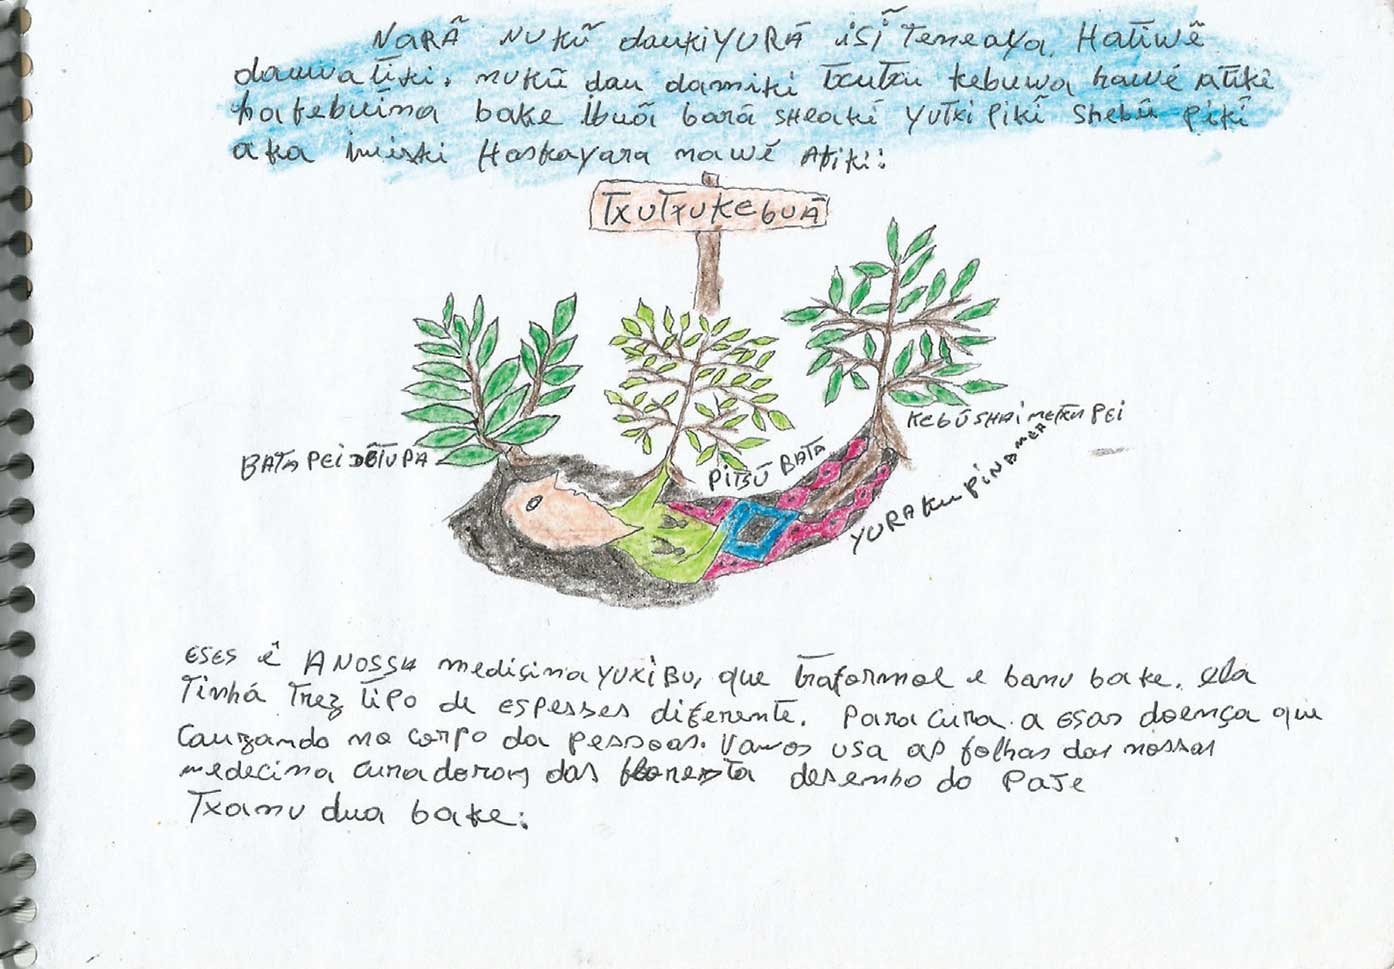 NARÃ NUKŨ dautiYURÃ ISĨ Temeaya. Hatiwẽ
dauwa tiki. nukũ dau damiki txutxu kebuwa hawẽ atiki
hatebuima bake ibuã bará sheaki YUTXI PIKĨ Shebũ PiKĨ
aka imiski Haskayara mawẽ Atiki:
TXUTXUKEBUÃ
BATA PEI DÊTUPA
PITSŨ BATA
KEBŨSHAIMETSU PEI
YURAKUPINAMEA
ESES é A NOSSA mediçina YUXIBU, que traformol e banu bake. ela
Tinhá Trez tipo de ESPESSES diferente. Para cura a ESAS doença que
Cauzando no corpo da pessoas. Vamos usa as folhas das nossas
medecina curadoras das floresta desenho do PaJe
Txanu dua bake: